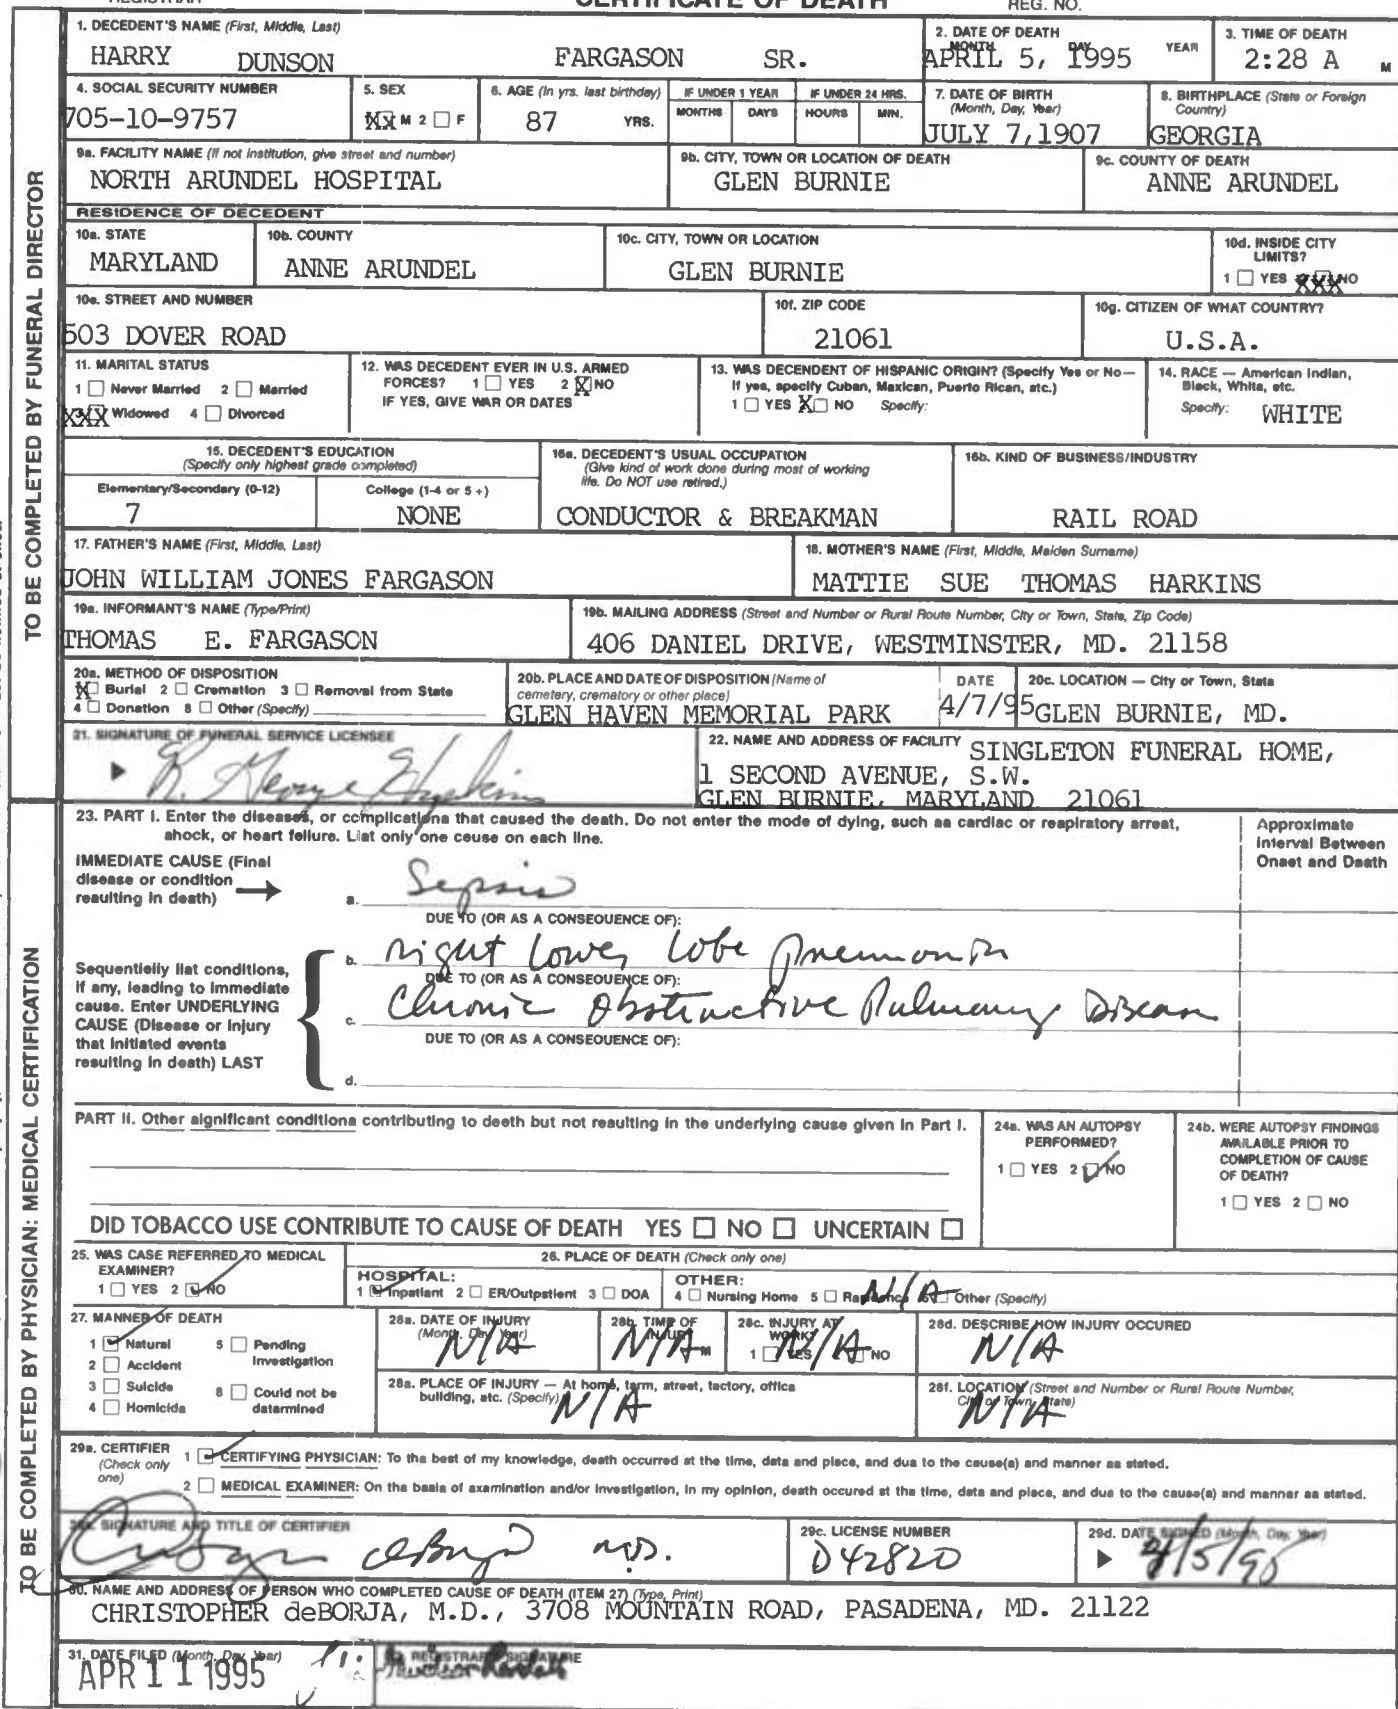 CERTIFICATE OF DEATH
REGISTRAR REG. NO.
TO BE COMPLETED BY FUNERAL DIRECTOR
1. DECEDENT'S NAME (First, Middle, Last)
HARRY DUNSON FARGASON SR.
2. DATE OF DEATH
MONTH DAY YEAR
APRIL 5, 1995
3. TIME OF DEATH
2:28 A M
4. SOCIAL SECURITY NUMBER
705-10-9757
5. SEX
XX M 2 ☐ F
6. AGE (In yrs. last birthday)
87 YRS.
IF UNDER 1 YEAR
MONTHS DAYS
IF UNDER 24 HRS.
HOURS MIN.
7. DATE OF BIRTH
(Month, Day, Year)
JULY 7,1907
8. BIRTHPLACE (State or Foreign
Country)
GEORGIA
9a. FACILITY NAME (If not institution, give street and number)
NORTH ARUNDEL HOSPITAL
9b. CITY, TOWN OR LOCATION OF DEATH
GLEN BURNIE
9c. COUNTY OF DEATH
ANNE ARUNDEL
RESIDENCE OF DECEDENT
10a. STATE
MARYLAND
10b. COUNTY
ANNE ARUNDEL
10c. CITY, TOWN OR LOCATION
GLEN BURNIE
10d. INSIDE CITY
LIMITS?
1 ☐ YES XXX NO
10e. STREET AND NUMBER
503 DOVER ROAD
10f. ZIP CODE
21061
10g. CITIZEN OF WHAT COUNTRY?
U.S.A.
11. MARITAL STATUS
1 ☐ Never Married 2 ☐ Married
XXX Widowed 4 ☐ Divorced
12. WAS DECEDENT EVER IN U.S. ARMED
FORCES? 1 ☐ YES 2 X NO
IF YES, GIVE WAR OR DATES
13. WAS DECENDENT OF HISPANIC ORIGIN? (Specify Yes or No—
If yes, specify Cuban, Mexican, Puerto Rican, etc.)
1 ☐ YES X☐ NO Specify:
14. RACE — American Indian,
Black, White, etc.
Specify: WHITE
15. DECEDENT'S EDUCATION
(Specify only highest grade completed)
Elementary/Secondary (0-12)
7
College (1-4 or 5 +)
NONE
16a. DECEDENT'S USUAL OCCUPATION
(Give kind of work done during most of working
life. Do NOT use retired.)
CONDUCTOR & BREAKMAN
16b. KIND OF BUSINESS/INDUSTRY
RAIL ROAD
17. FATHER'S NAME (First, Middle, Last)
JOHN WILLIAM JONES FARGASON
18. MOTHER'S NAME (First, Middle, Maiden Surname)
MATTIE SUE THOMAS HARKINS
19a. INFORMANT'S NAME (Type/Print)
THOMAS E. FARGASON
19b. MAILING ADDRESS (Street and Number or Rural Route Number, City or Town, State, Zip Code)
406 DANIEL DRIVE, WESTMINSTER, MD. 21158
20a. METHOD OF DISPOSITION
X☐ Burial 2 ☐ Cremation 3 ☐ Removal from State
4 ☐ Donation 8 ☐ Other (Specify)
20b. PLACE AND DATE OF DISPOSITION (Name of
cemetery, crematory or other place)
GLEN HAVEN MEMORIAL PARK
DATE
4/7/95
20c. LOCATION — City or Town, State
GLEN BURNIE, MD.
21. SIGNATURE OF FUNERAL SERVICE LICENSEE
22. NAME AND ADDRESS OF FACILITY SINGLETON FUNERAL HOME,
1 SECOND AVENUE, S.W.
GLEN BURNIE, MARYLAND 21061
TO BE COMPLETED BY PHYSICIAN: MEDICAL CERTIFICATION
23. PART I. Enter the diseases, or complications that caused the death. Do not enter the mode of dying, such as cardiac or respiratory arrest,
shock, or heart failure. List only one cause on each line.
Approximate
Interval Between
Onset and Death
IMMEDIATE CAUSE (Final
disease or condition
resulting in death)
a. Sepsis
DUE TO (OR AS A CONSEQUENCE OF):
b. right lower lobe pneumonia
DUE TO (OR AS A CONSEQUENCE OF):
c. Chronic Obstructive Pulmonary Disease
DUE TO (OR AS A CONSEQUENCE OF):
d.
Sequentially list conditions,
if any, leading to immediate
cause. Enter UNDERLYING
CAUSE (Disease or injury
that initiated events
resulting in death) LAST
PART II. Other significant conditions contributing to death but not resulting in the underlying cause given in Part I.
24a. WAS AN AUTOPSY
PERFORMED?
1 ☐ YES 2 ☑ NO
24b. WERE AUTOPSY FINDINGS
AVAILABLE PRIOR TO
COMPLETION OF CAUSE
OF DEATH?
1 ☐ YES 2 ☐ NO
DID TOBACCO USE CONTRIBUTE TO CAUSE OF DEATH YES ☐ NO ☐ UNCERTAIN ☐
25. WAS CASE REFERRED TO MEDICAL
EXAMINER?
1 ☐ YES 2 ☑ NO
26. PLACE OF DEATH (Check only one)
HOSPITAL:
1 ☑ Inpatient 2 ☐ ER/Outpatient 3 ☐ DOA
OTHER:
4 ☐ Nursing Home 5 ☐ Residence 6 ☐ Other (Specify)
N/A
27. MANNER OF DEATH
1 ☑ Natural 5 ☐ Pending
Investigation
2 ☐ Accident
3 ☐ Suicide 8 ☐ Could not be
determined
4 ☐ Homicide
28a. DATE OF INJURY
(Month, Day, Year)
N/A
28b. TIME OF
INJURY
N/A M
28c. INJURY AT
WORK?
1 ☐ YES ☐ NO
N/A
28d. DESCRIBE HOW INJURY OCCURED
N/A
28e. PLACE OF INJURY — At home, farm, street, factory, office
building, etc. (Specify)
N/A
28f. LOCATION (Street and Number or Rural Route Number,
City or Town, State)
N/A
29a. CERTIFIER
(Check only
one)
1 ☑ CERTIFYING PHYSICIAN: To the best of my knowledge, death occurred at the time, date and place, and due to the cause(s) and manner as stated.
2 ☐ MEDICAL EXAMINER: On the basis of examination and/or investigation, in my opinion, death occured at the time, date and place, and due to the cause(s) and manner as stated.
SIGNATURE AND TITLE OF CERTIFIER
M.D.
29c. LICENSE NUMBER
D42820
29d. DATE SIGNED (Month, Day, Year)
4/5/95
30. NAME AND ADDRESS OF PERSON WHO COMPLETED CAUSE OF DEATH (ITEM 27) (Type, Print)
CHRISTOPHER deBORJA, M.D., 3708 MOUNTAIN ROAD, PASADENA, MD. 21122
31. DATE FILED (Month, Day, Year)
APR 11 1995
REGISTRAR'S SIGNATURE